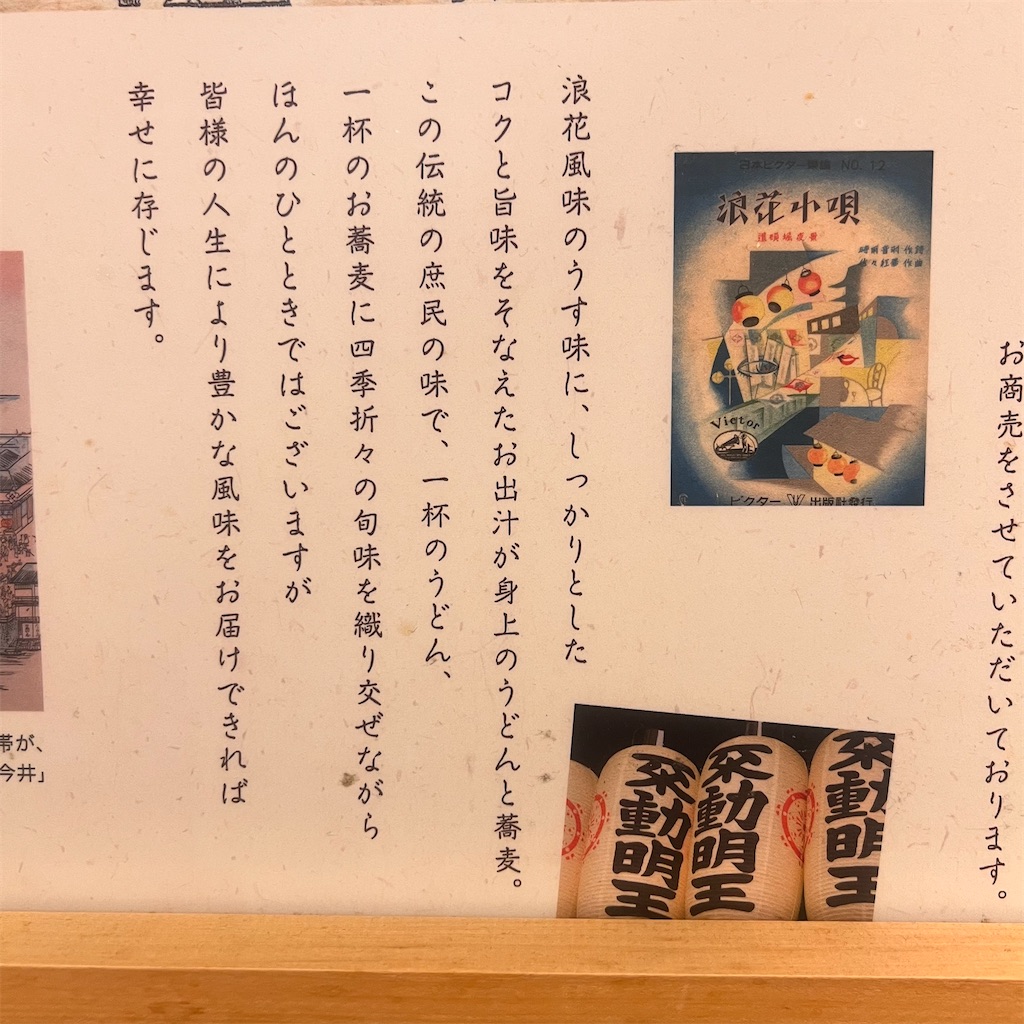 お商売をさせていただいております。
日本ビクター樂譜 NO. 12
浪花小唄
道頓堀夜景
時雨音羽 作詩
佐々紅華 作曲
Victor
ビクター 出版社發行
浪花風味のうす味に、しっかりとした
コクと旨味をそなえたお出汁が身上のうどんと蕎麦。
この伝統の庶民の味で、一杯のうどん、
一杯のお蕎麦に四季折々の旬味を織り交ぜながら
ほんのひとときではございますが
皆様の人生により豊かな風味をお届けできれば
幸せに存じます。
不動明王
不動明王
不動明王
帯が、
今井」